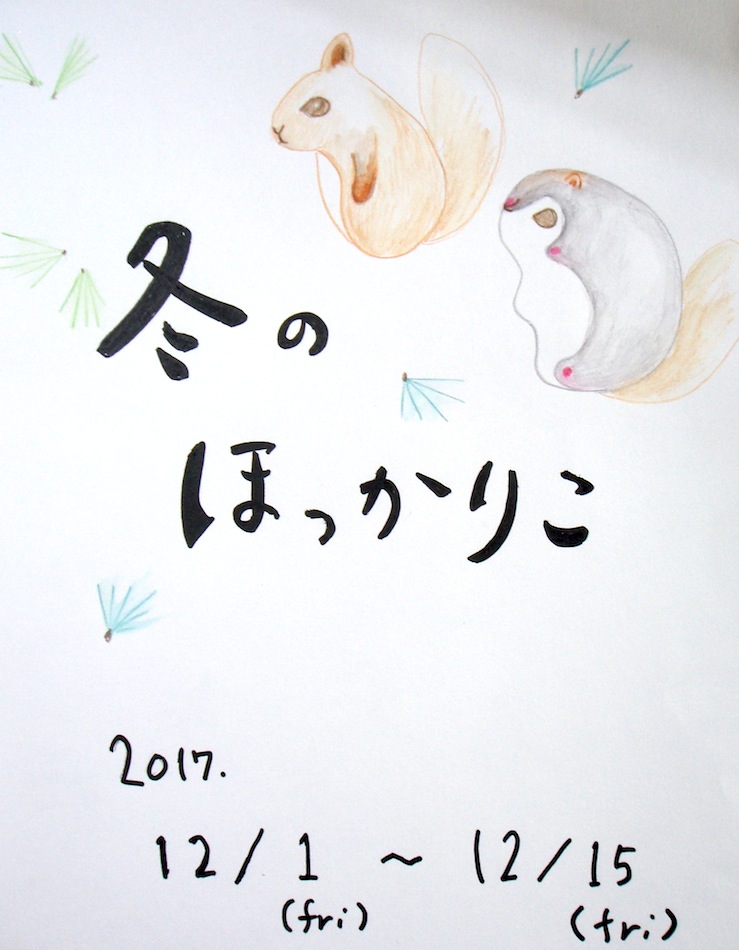 冬の
ほっかりこ
2017.
12/1 ~ 12/15
(fri) (fri)